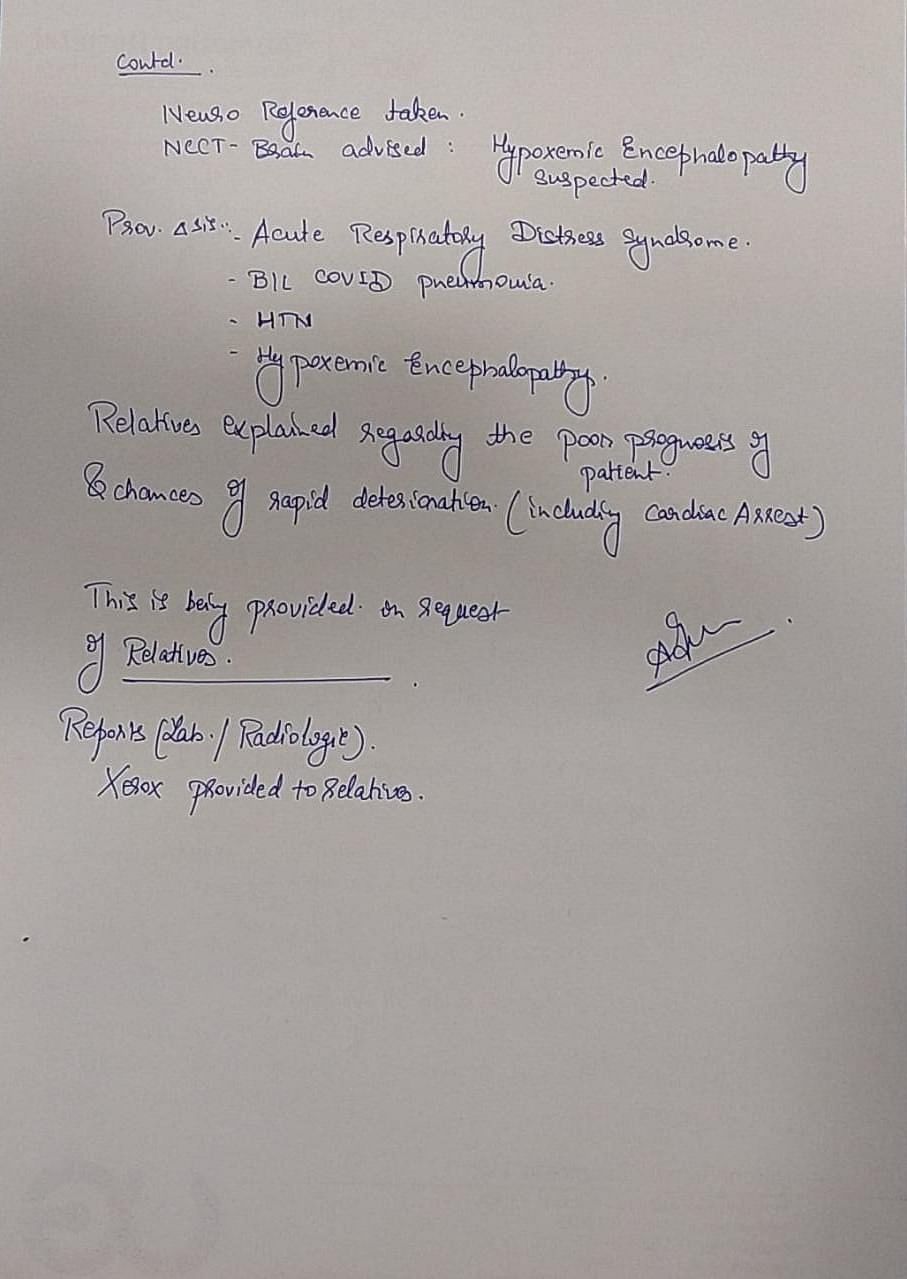 Contd.
Neuro Reference taken.
NCCT- Brain advised : Hypoxemic Encephalopathy
suspected.
Prov. Δsis:- Acute Respiratory Distress Syndrome.
- B/L COVID pneumonia.
- HTN
- Hypoxemic Encephalopathy.
Relatives explained regarding the poor prognosis of
patient.
& chances of rapid deterioration. (including Cardiac Arrest)
This is being provided. on request
of Relatives.
Reports (Lab./ Radiologic).
Xerox provided to relatives.